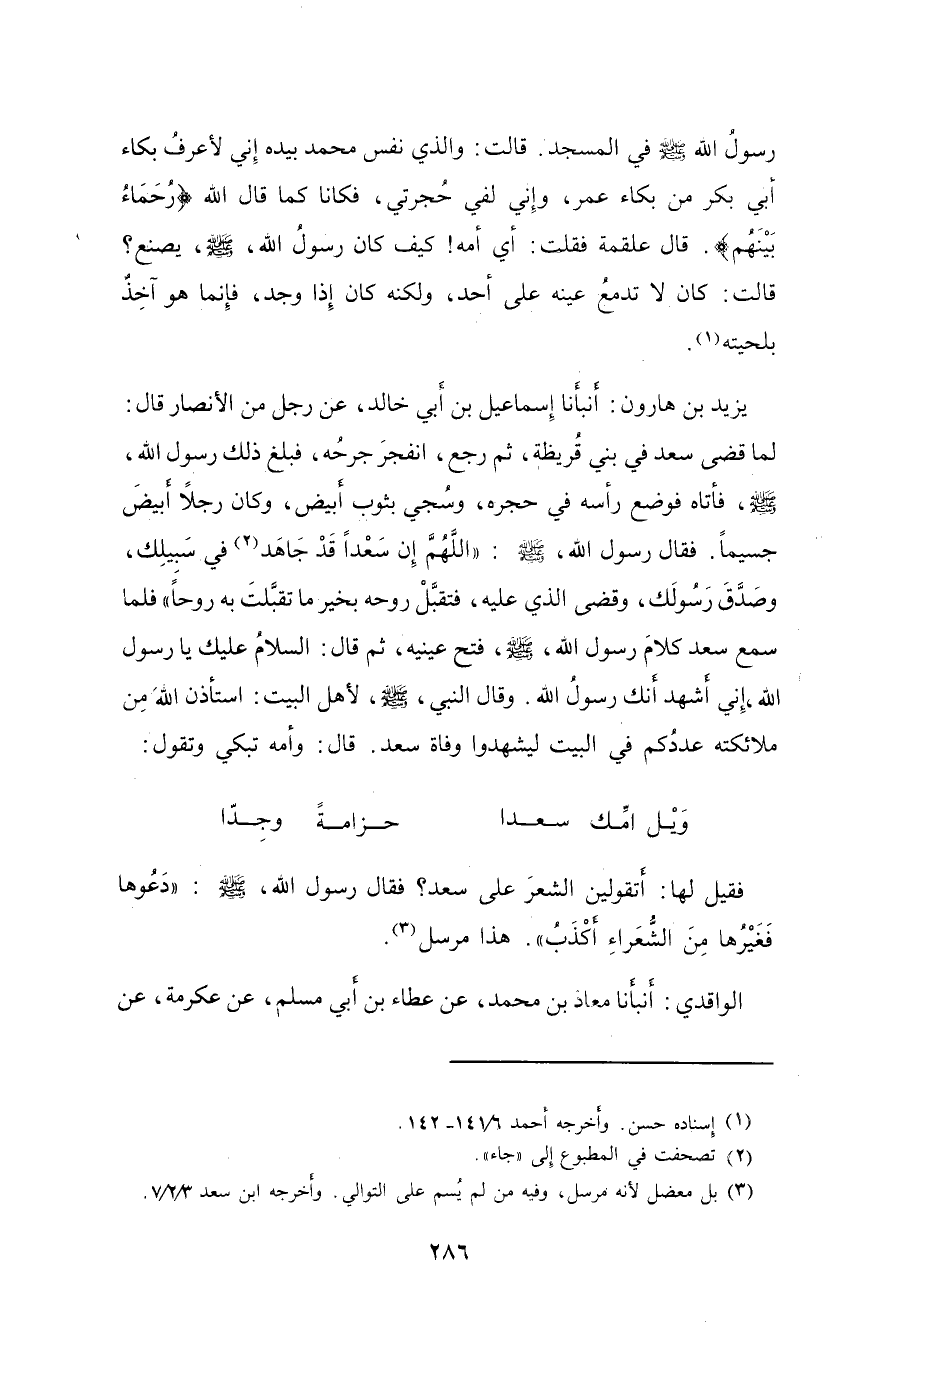 رسولُ الله ﷺ في المسجد. قالت: والذي نفس محمد بيده إني لأعرفُ بكاء
أبي بكر من بكاء عمر، وإني لفي حُجرتي، فكانا كما قال الله ﴿رُحَمَاءُ
بَيْنَهُم﴾. قال علقمة فقلت: أي أمه! كيف كان رسولُ الله، ﷺ، يصنع؟
قالت: كان لا تدمعُ عينه على أحد، ولكنه كان إذا وجد، فإنما هو آخِذٌ
بلحيته(١).
يزيد بن هارون: أنبأنا إسماعيل بن أبي خالد، عن رجل من الأنصار قال:
لما قضى سعد في بني قُريظة، ثم رجع، انفجرَ جرحُه، فبلغ ذلك رسول الله،
ﷺ، فأتاه فوضع رأسه في حجره، وسُجي بثوب أبيض، وكان رجلاً أبيضَ
جسيماً. فقال رسول الله، ﷺ : «اللَّهُمَّ إِن سَعْداً قَدْ جَاهَد(٢) في سَبِيلِك،
وصَدَّقَ رَسُولَك، وقضى الذي عليه، فتقبَّلْ روحه بخير ما تقبَّلتَ به روحاً» فلما
سمع سعد كلامَ رسول الله، ﷺ، فتح عينيه، ثم قال: السلامُ عليك يا رسول
الله، إني أشهد أنك رسولُ الله. وقال النبي، ﷺ، لأهل البيت: استأذن اللهَ مِن
ملائكته عددُكم في البيت ليشهدوا وفاة سعد. قال: وأمه تبكي وتقول:
وَيْـل امِّـك سـعـدا حـزامـةً وجِـدّا
فقيل لها: أتقولين الشعرَ على سعد؟ فقال رسول الله، ﷺ : «دَعُوها
فَغَيْرُها مِنَ الشُّعَراءِ أَكْذَبُ». هذا مرسل(٣).
الواقدي: أنبأنا معاذ بن محمد، عن عطاء بن أبي مسلم، عن عكرمة، عن
(١) إسناده حسن. وأخرجه أحمد ١٤١/٦ـ ١٤٢.
(٢) تصحفت في المطبوع إلى «جاء».
(٣) بل معضل لأنه مرسل، وفيه من لم يُسم على التوالي. وأخرجه ابن سعد ٧/٢/٣.
٢٨٦